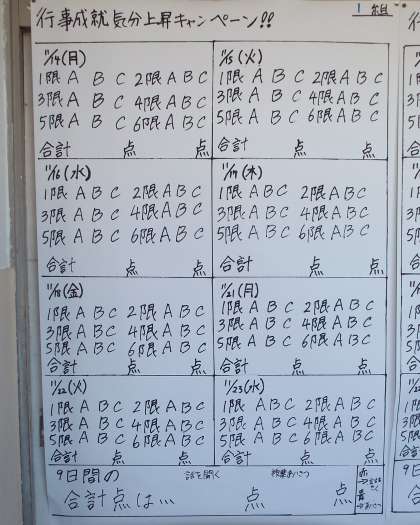 行事成就気分上昇キャンペーン!!
1組
11/14(月)
1限 A B C 2限 A B C
3限 A B C 4限 A B C
5限 A B C 6限 A B C
合計 点 点
11/15(火)
1限 A B C 2限 A B C
3限 A B C 4限 A B C
5限 A B C 6限 A B C
合計 点 点
11/16(水)
1限 A B C 2限 A B C
3限 A B C 4限 A B C
5限 A B C 6限 A B C
合計 点 点
11/17(木)
1限 A B C 2限 A B C
3限 A B C 4限 A B C
5限 A B C 6限 A B C
合計 点 点
11/18(金)
1限 A B C 2限 A B C
3限 A B C 4限 A B C
5限 A B C 6限 A B C
合計 点 点
11/21(月)
1限 A B C 2限 A B C
3限 A B C 4限 A B C
5限 A B C 6限 A B C
合計 点 点
11/22(火)
1限 A B C 2限 A B C
3限 A B C 4限 A B C
5限 A B C 6限 A B C
合計 点 点
11/23(水)
1限 A B C 2限 A B C
3限 A B C 4限 A B C
5限 A B C 6限 A B C
合計 点 点
9日間の 話を聞く 授業あいさつ
合計点は… 点 点